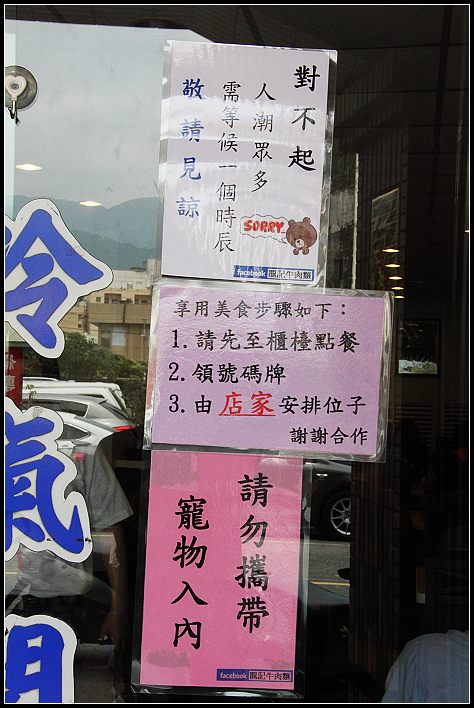 對不起
人潮眾多
需等候一個時辰
敬請見諒
SORRY
facebook 龍記牛肉麵
享用美食步驟如下：
1. 請先至櫃檯點餐
2. 領號碼牌
3. 由 店家 安排位子
謝謝合作
請勿攜帶
寵物入內
facebook 龍記牛肉麵
冷氣開